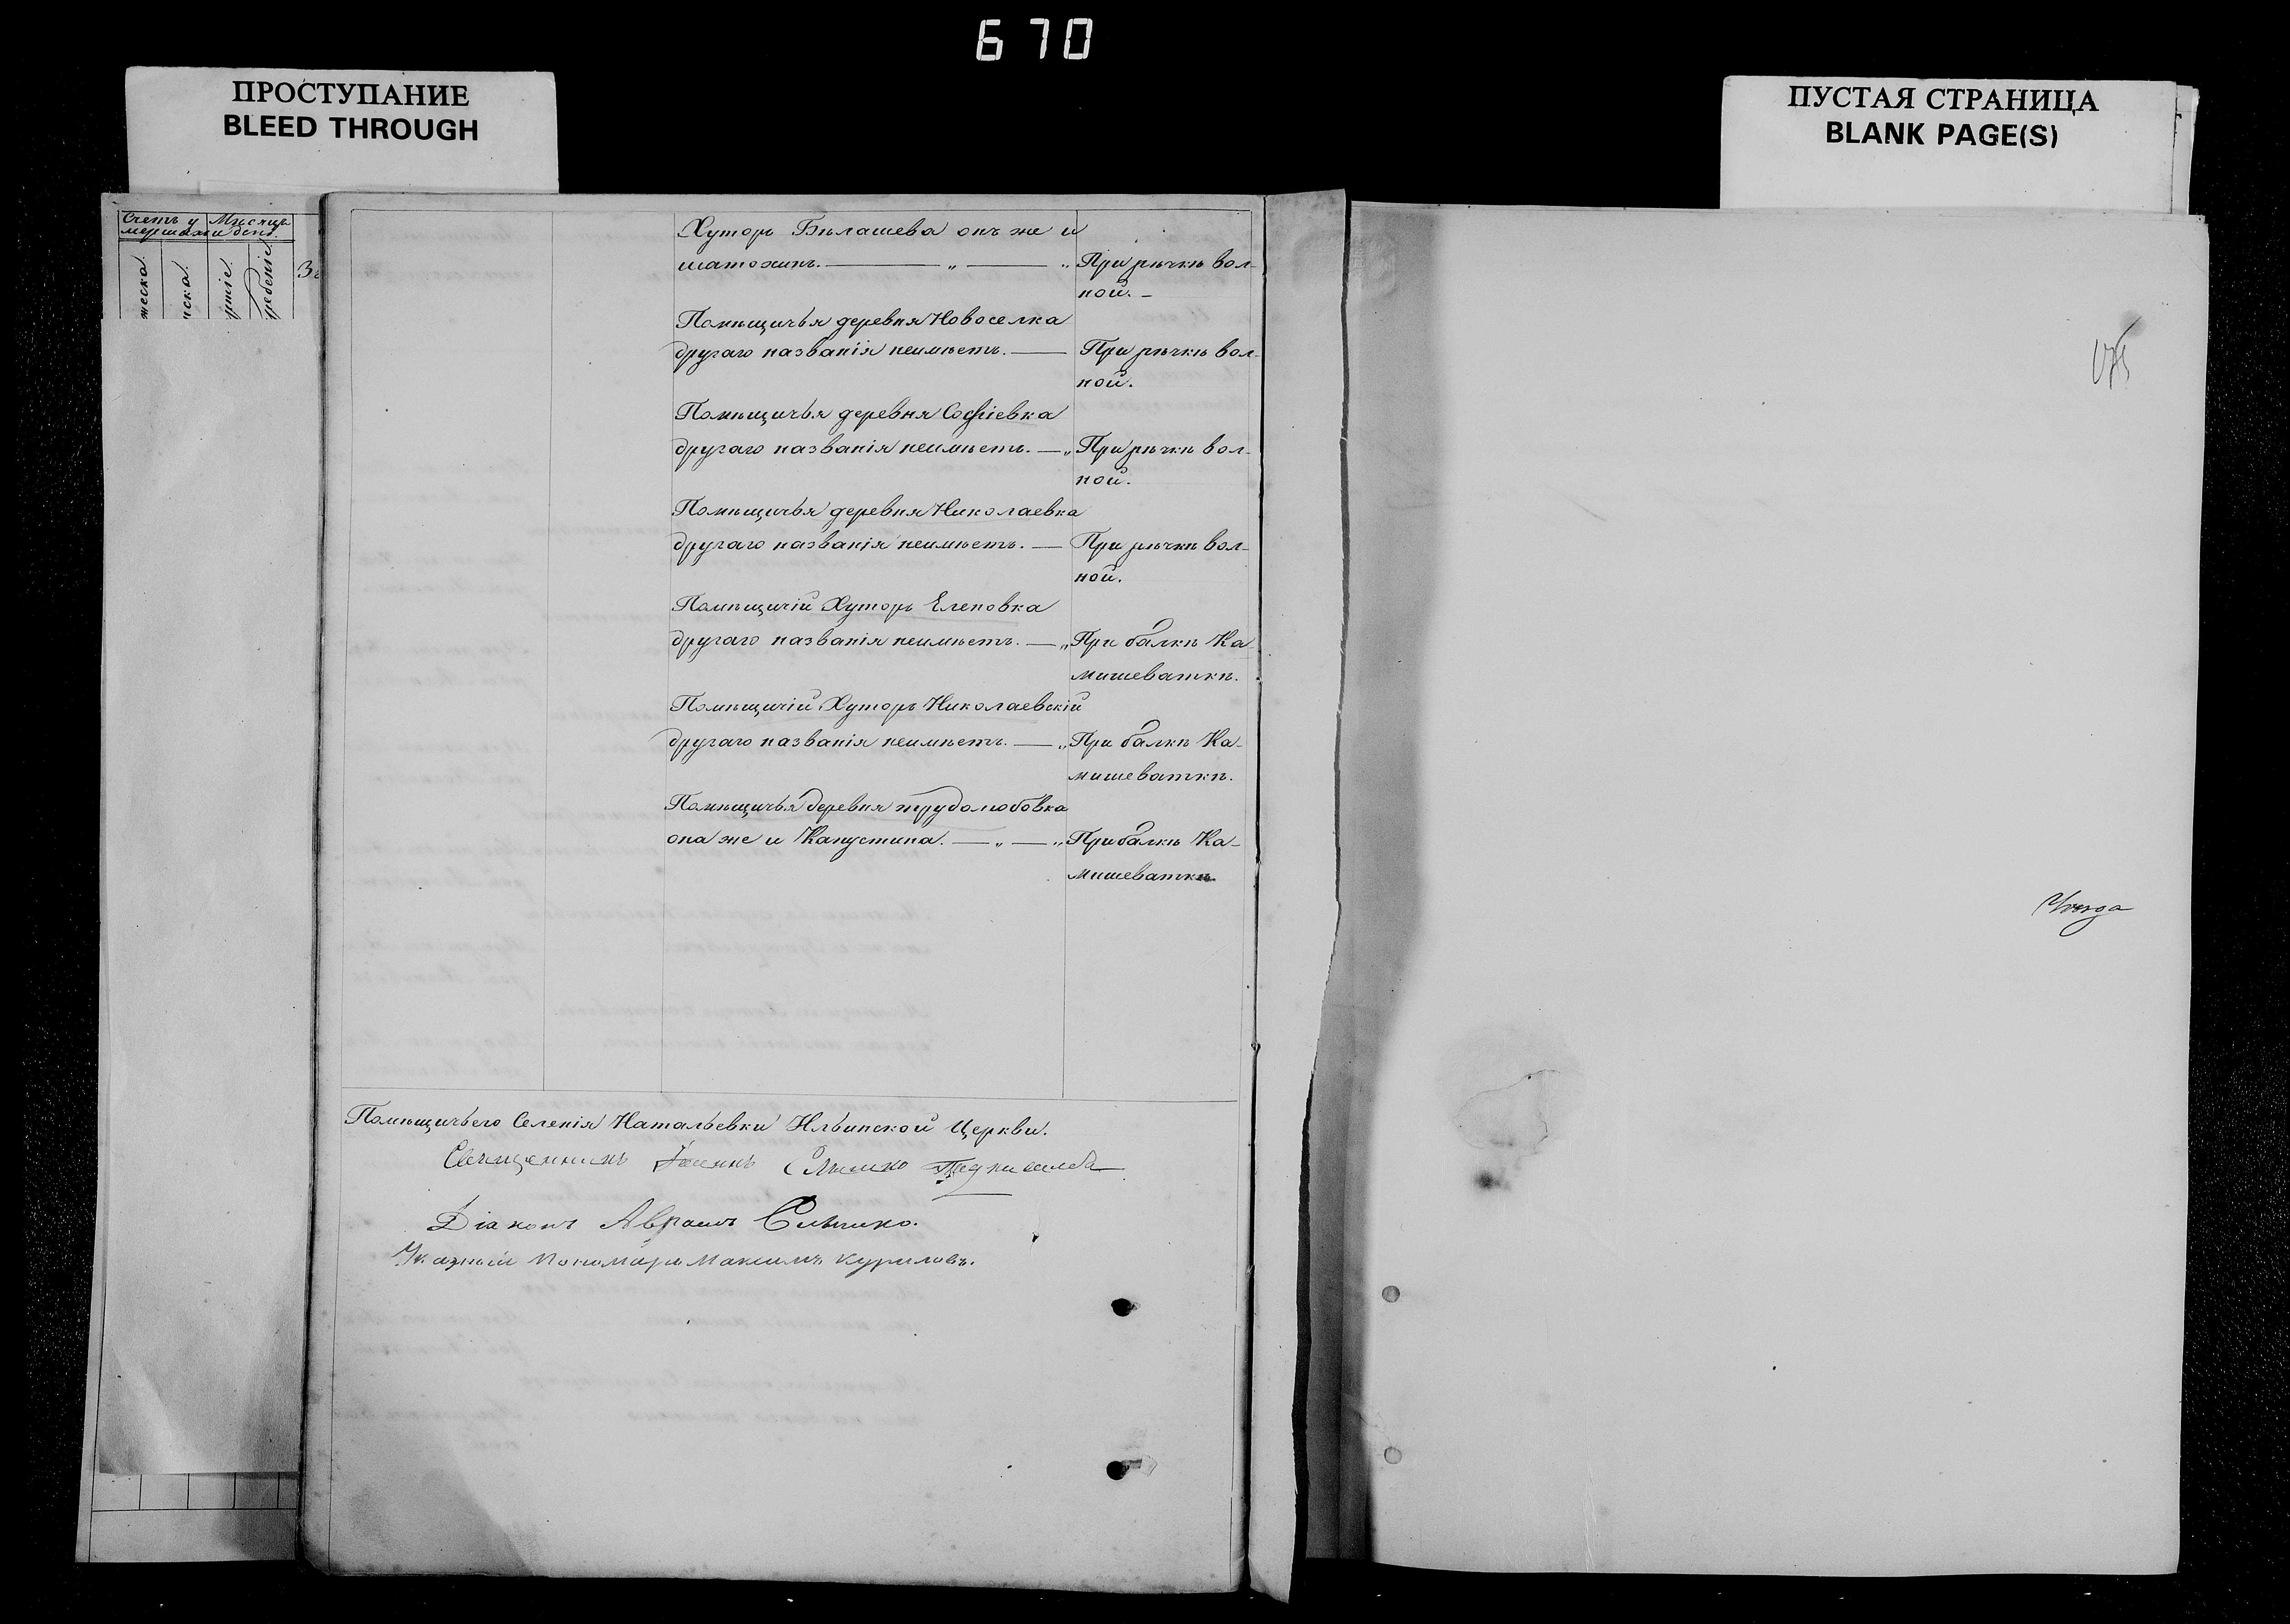 670
ПРОСТУПАНИЕ
BLEED THROUGH
ПУСТАЯ СТРАНИЦА
BLANK PAGE(S)
Счетъ у
мершихъ
Мѣсяцъ
и день.
Хуторъ Бѣлашева онъ же и
шатохинъ. — „ — „ При рѣчкѣ вол-
ной. –
Помѣщичья деревня Новоселка
другаго названія неимѣетъ. — При рѣчкѣ вол-
ной.
Помѣщичья деревня Софіевка
другаго названія неимѣетъ. — „ При рѣчкѣ вол-
ной.
Помѣщичья деревня Николаевка
другаго названія неимѣетъ. — При рѣчкѣ вол-
ной.
Помѣщичій Хуторъ Еленовка
другаго названія неимѣетъ. — „ При балкѣ Ка-
мишеваткѣ.
Помѣщичій Хуторъ Николаевскій
другаго названія неимѣетъ. — „ При балкѣ Ка-
мишеваткѣ.
Помѣщичья деревня трудолюбовка
она же и Капустина. — „ — „ При балкѣ Ка-
мишеваткѣ.
Помѣщичьего Селенія Натальевки Ильинской Церкви.
Священникъ Іоаннъ
Діаконъ Авраамъ
Указный Пономарь Максимъ Куриловъ.